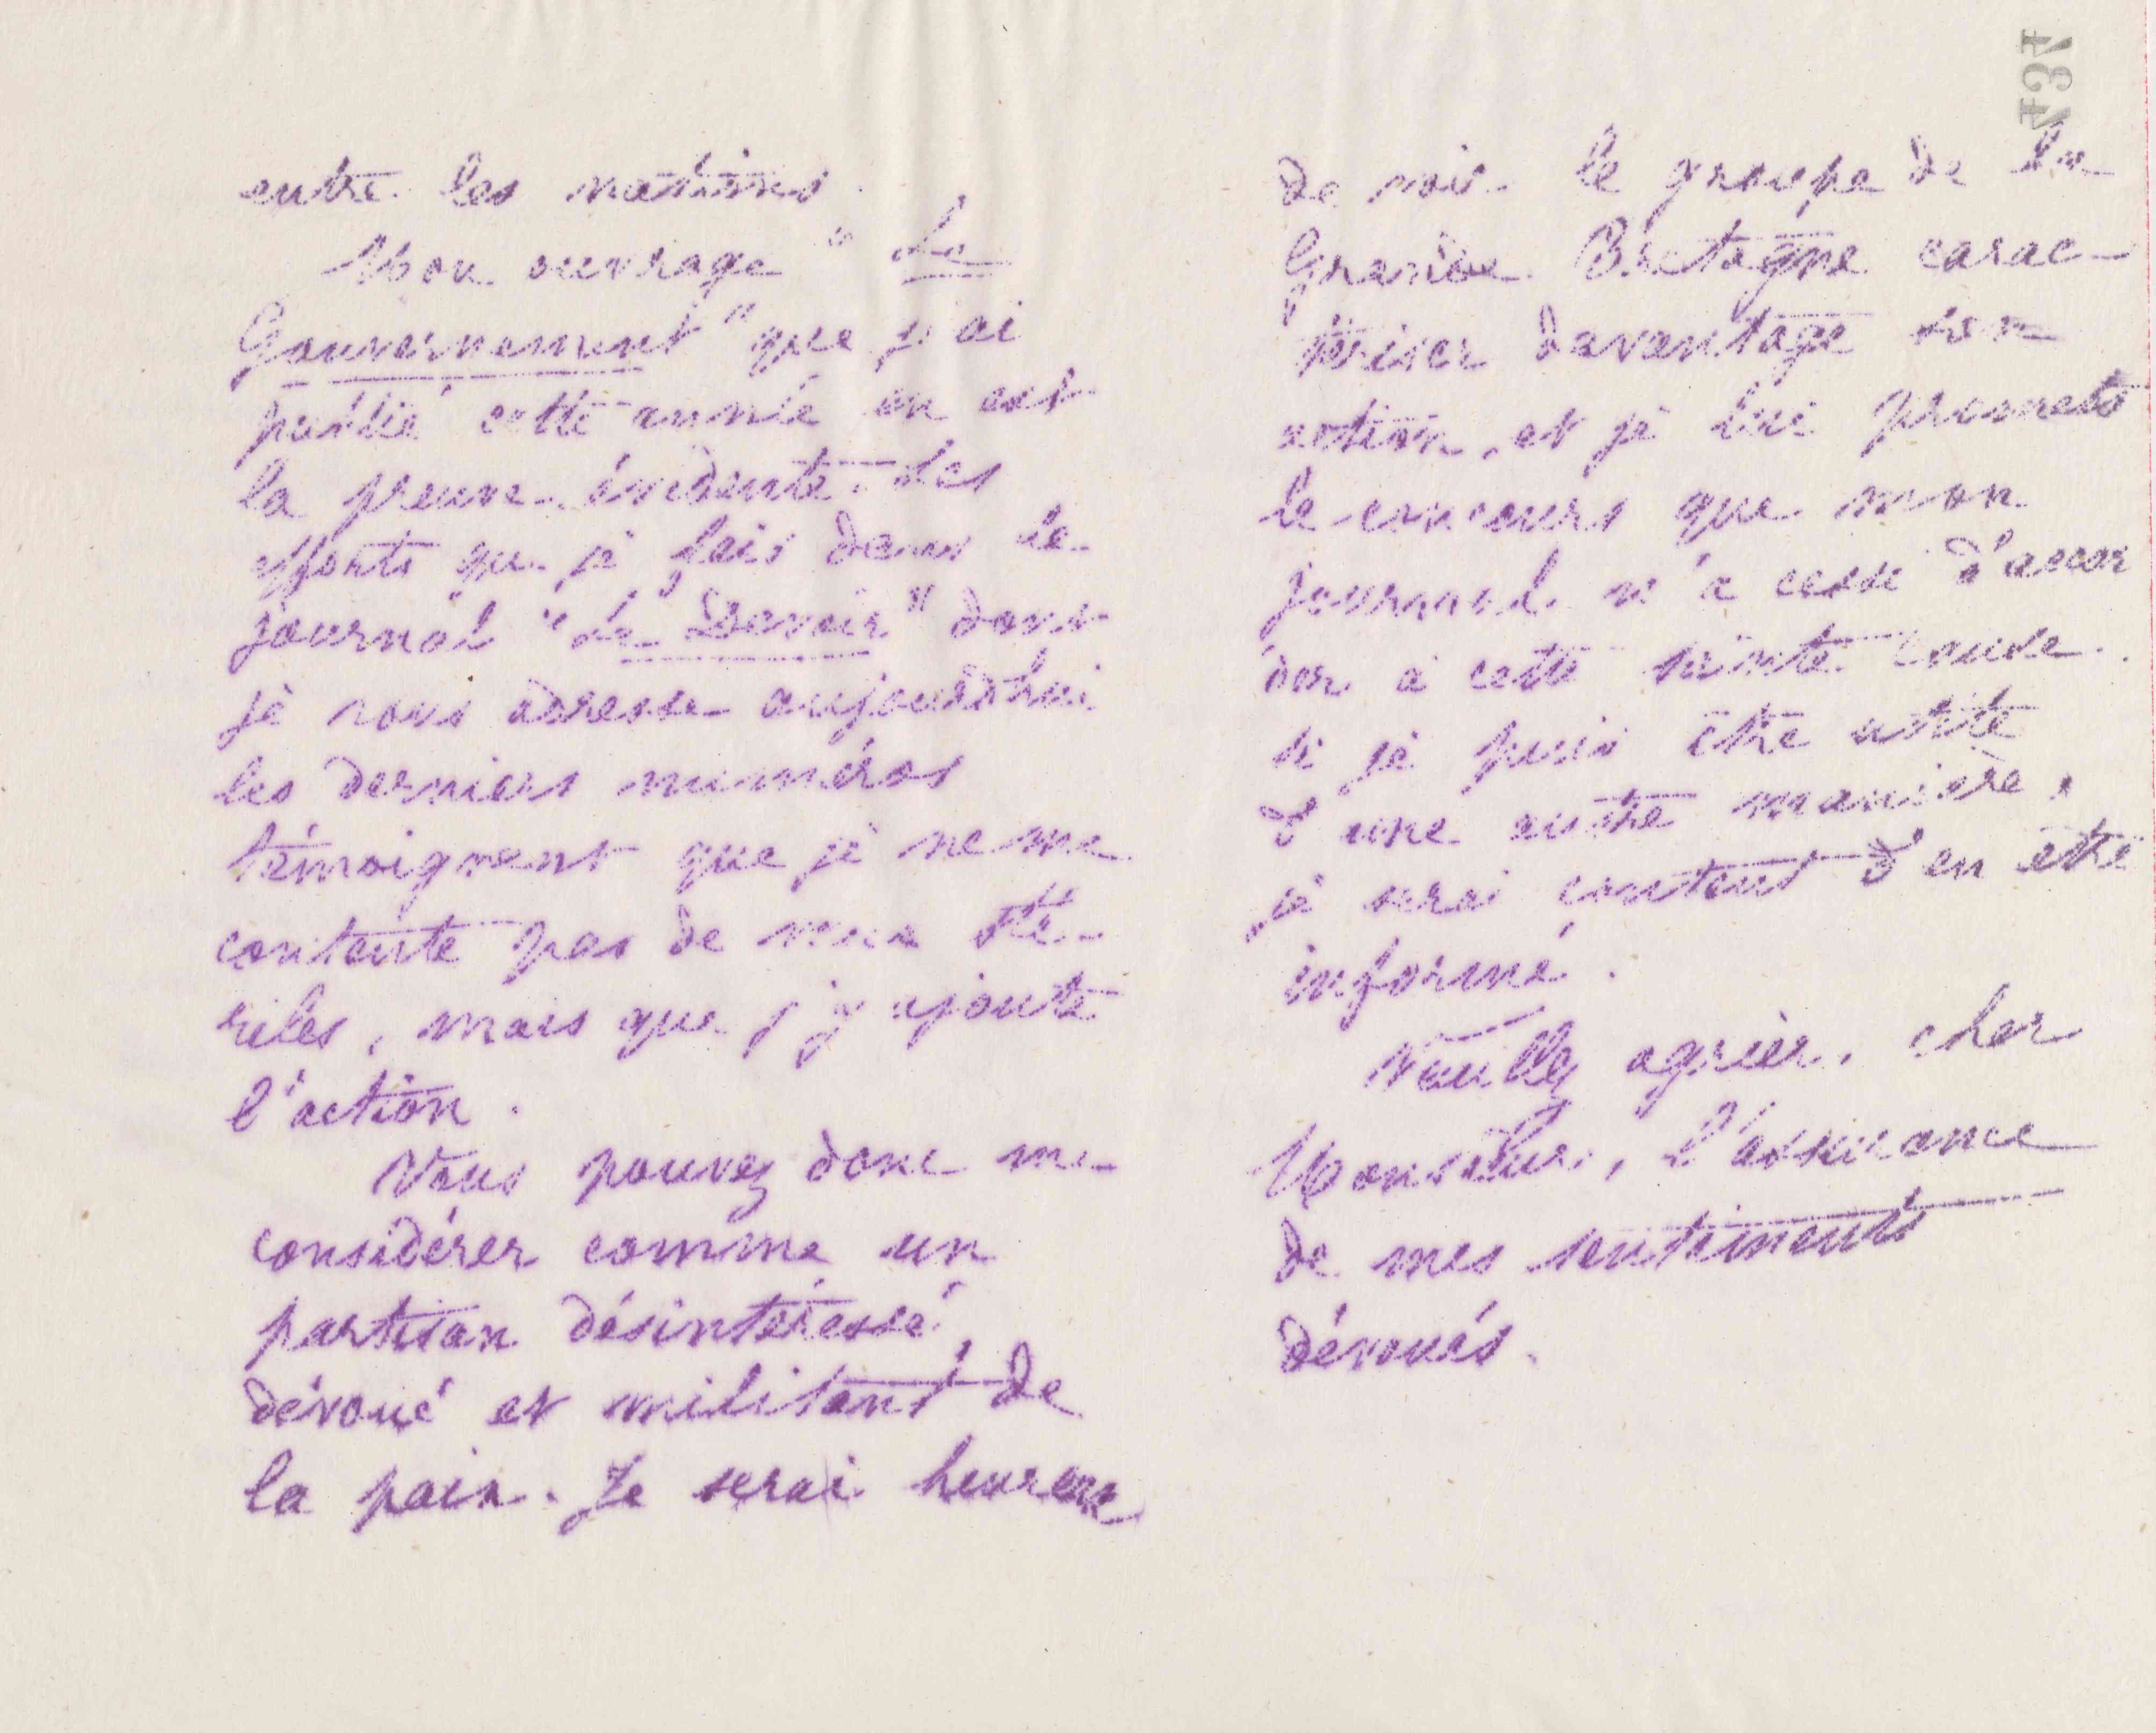 entre les nations.
Mon ouvrage "Le
Gouvernement" que j'ai
publié cette année en est
la preuve évidente. Les
efforts que je fais dans le
journal "Le Devoir" dont
je vous adresse aujourd'hui
les derniers numéros
témoignent que je ne me
contente pas de vœux sté-
riles, mais que j'y ajoute
l'action.
Vous pouvez donc me
considérer comme un
partisan désintéressé,
dévoué et militant de
la paix. Je serai heureux
437
de voir le groupe de la
Grande Bretagne carac-
tériser davantage son
action, et je lui promets
le concours que mon
journal n'a cessé d'accor
der à cette sainte cause.
Si je puis être utile
d'une autre manière,
je serai content d'en être
informé.
Veuillez agréer, cher
Monsieur, l'assurance
de mes sentiments
dévoués.